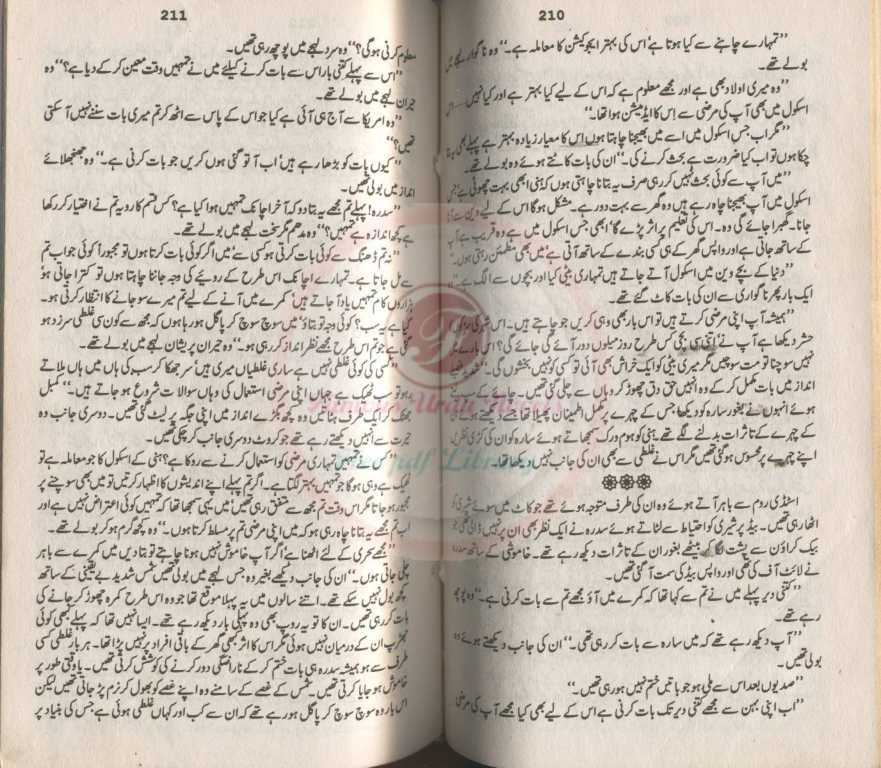 210
”تمہارے چاہنے سے کیا ہوتا ہے‘ اس کی بہتر ایجوکیشن کا معاملہ ہے۔“ وہ ناگوار لہجے میں
بولے تھے۔
”وہ میری اولاد بھی ہے اور مجھے معلوم ہے کہ اس کے لیے کیا بہتر ہے اور کیا نہیں
اسکول میں بھی آپ کی مرضی سے اس کا ایڈمیشن ہوا تھا۔“
”مگر اب جس اسکول میں اسے میں بھیجنا چاہتا ہوں اس کا معیار زیادہ بہتر ہے پہلے بھی بتا
چکا ہوں تو اب کیا ضرورت ہے بحث کرنے کی۔“ ان کی بات کاٹتے ہوئے وہ بولے تھے۔
”میں آپ سے کوئی بحث نہیں کر رہی صرف یہ بتانا چاہتی ہوں کہ ہنی ابھی بہت چھوٹی ہے جس
اسکول میں آپ بھیجنا چاہ رہے ہیں وہ گھر سے بہت دور ہے۔ مشکل ہوگا اس کے لیے وین سے آنا
جانا۔ گھبرا جائے گی وہ۔ اس کی تعلیم پر اثر پڑے گا‘ ابھی جس اسکول میں ہے وہ قریب ہے آپ
کے ساتھ جاتی ہے اور واپس گھر کے ہی کسی بندے کے ساتھ آتی ہے‘ میں بھی مطمئن رہتی ہوں۔“
”دنیا کے بچے وین میں اسکول آتے جاتے ہیں تمہاری بیٹی کیا اور بچوں سے الگ ہے۔“
ایک بار پھر ناگواری سے ان کی بات کاٹ گئے تھے۔
”ہمیشہ آپ اپنی مرضی کرتے ہیں تو اس بار بھی وہی کریں جو چاہتے ہیں۔ اس شہر کی
حشر دیکھا ہے آپ نے‘ اتنی سی بچی کس طرح روز میلوں دور آئے گی جائے گی؟ اس بارے میں
نہیں سوچنا تو مت سوچیں مگر میری بیٹی کو ایک خراش بھی آئی تو کسی کو نہیں بخشوں گی۔“
انداز میں بات مکمل کر کے وہ انہیں حق دق چھوڑ کر وہاں سے چلی گئی تھیں۔ چائے کے سپ لیتے
ہوئے انہوں نے بغور سارہ کو دیکھا جس کے چہرے پر مکمل اطمینان پھیلا تھا جسے دیکھتے ہوئے
کے چہرے کے تاثرات بدلنے لگے تھے‘ ہنی کو ہوم ورک سمجھاتے ہوئے سارہ کو ان کی کڑی نظریں
اپنے چہرے پر محسوس ہو گئی تھیں مگر اس نے غلطی سے بھی ان کی جانب نہیں دیکھا تھا۔
اسٹڈی روم سے باہر آتے ہوئے وہ ان کی طرف متوجہ ہوئے تھے جو کاٹ میں سوئے شیری کو
اٹھا رہی تھیں۔ بیڈ پر شیری کو احتیاط سے لٹاتے ہوئے سدرہ نے ایک نظر بھی ان پر نہیں ڈالی تھی جو
بیک کراؤن سے پشت لگا کر بیٹھے بغور ان کے تاثرات دیکھ رہے تھے۔ خاموشی کے ساتھ سدرہ
نے لائٹ آف کی تھی اور واپس بیڈ کی سمت آ گئی تھیں۔
”کتنی دیر پہلے میں نے تم سے کہا تھا کہ کمرے میں آؤ مجھے تم سے بات کرنی ہے۔“ وہ پوچھ
رہے تھے۔
”آپ دیکھ رہے تھے کہ میں سارہ سے بات کر رہی تھی۔“ ان کی جانب دیکھتے ہوئے وہ
بولی تھیں۔
”صدیوں بعد اس سے ملی ہو جو باتیں ختم نہیں ہو رہی تھیں۔“
”اب اپنی بہن سے مجھے کتنی دیر تک بات کرنی ہے اس کے لیے بھی کیا مجھے آپ کی مرضی
211
معلوم کرنی ہوگی؟“ وہ سرد لہجے میں پوچھ رہی تھیں۔
”اس سے پہلے کتنی بار اس سے بات کرنے کیلئے میں نے تمہیں وقت معین کر کے دیا ہے؟“ وہ
حیران لہجے میں بولے تھے۔
”وہ امریکا سے آج ہی آئی ہے کیا جو اس کے پاس سے اٹھ کر تم میری بات سننے نہیں آ سکتی
تھیں؟“
”کیوں بات کو بڑھا رہے ہیں‘ اب آ تو گئی ہوں کریں جو بات کرنی ہے۔“ وہ جھنجھلائے
انداز میں بولی تھیں۔
”سدرہ! پہلے تم مجھے یہ بتا دو کہ آخر اچانک تمہیں ہوا کیا ہے؟ کس قسم کا رویہ تم نے اختیار کر رکھا
ہے کچھ اندازہ ہے تمہیں؟“ وہ مدھم مگر سخت لہجے میں بولے تھے۔
”نہ تم ڈھنگ سے کوئی بات کرتی ہو کسی سے‘ میں اگر کوئی بات کرتا ہوں تو مجبوراً کوئی جواب تم
سے مل جاتا ہے۔ تمہارے اچانک اس طرح کے رویئے کی وجہ جاننا چاہتا ہوں تو کترا جاتی ہو‘
ہزاروں کام تمہیں یاد آ جاتے ہیں‘ کمرے میں آنے کے لیے تم میرے سو جانے کا انتظار کرتی ہو۔
کیا ہے یہ سب؟ کوئی وجہ تو بتاؤ‘ میں سوچ سوچ کر پاگل ہو رہا ہوں کہ مجھ سے کون سی غلطی سرزد ہو
گئی ہے جو تم اس طرح مجھے نظر انداز کر رہی ہو۔“ وہ حیران پریشان لہجے میں بولے تھے۔
”کسی کی کوئی غلطی نہیں ہے ساری غلطیاں میری ہیں‘ سر جھکا کر سب کی ہاں میں ہاں ملاتے
رہو تو سب ٹھیک ہے جہاں اپنی مرضی استعمال کی وہاں سوالات شروع ہو جاتے ہیں۔“ کمبل
جھٹک کر ایک طرف ہٹاتیں وہ کچھ بگڑے انداز میں اپنی جگہ پر لیٹ گئی تھیں۔ دوسری جانب وہ
حیرت سے انہیں دیکھتے رہے تھے جو کروٹ دوسری جانب کر چکی تھیں۔
”کس نے تمہیں تمہاری مرضی کو استعمال کرنے سے روکا ہے؟ ہنی کے اسکول کا جو معاملہ ہے تو
ٹھیک ہے وہی ہوگا جو تمہیں بہتر لگتا ہے۔ اگر تم پہلے اپنے اندیشوں کا اظہار کرتیں تو میں بھی سوچنے پر
مجبور ہو جاتا مگر اس وقت تم مجھ سے متفق رہی تھیں‘ میں یہی سمجھا تھا کہ تمہیں کوئی اعتراض نہیں ہے اور
اب تم مجھے یہ بتانا چاہ رہی ہو کہ میں اپنی مرضی تم پر مسلط کرتا ہوں۔“ وہ کچھ گرم ہو کر بولے تھے۔
”مجھے سحری کے لئے اٹھنا ہے‘ اگر آپ خاموش نہیں ہونا چاہتے تو بتا دیں میں کمرے سے باہر
چلی جاتی ہوں۔“ ان کی جانب دیکھے بغیر وہ جس لہجے میں بولی تھیں شمس شدید بے یقینی کے ساتھ
کچھ بول نہیں سکے تھے۔ اتنے سالوں میں یہ پہلا موقع تھا جو وہ اس طرح کمرہ چھوڑ کر جانے کی
بات کر رہی تھیں۔ ان کا تو یہ روپ بھی وہ پہلی بار دیکھ رہے تھے۔ ایسا نہیں تھا کہ پہلے کبھی کوئی
جھڑپ ان کے درمیان نہیں ہوئی مگر اس کا اثر کبھی گھر کے باقی افراد پر نہیں پڑا تھا۔ ہر بار غلطی کسی
طرف سے ہو ہمیشہ سدرہ ہی بات ختم کر کے ناراضگی دور کرنے کی کوشش کرتی تھیں۔ یا وقتی طور پر
خاموش ہو جایا کرتی تھیں۔ شمس کے غصے کے سامنے وہ اپنے غصے کو بھول کر نرم پڑ جاتی تھیں لیکن
اس بار وہ سوچ سوچ کر پاگل ہو رہے تھے کہ ان سے کب اور کہاں غلطی ہوئی ہے جس کی بنیاد پر